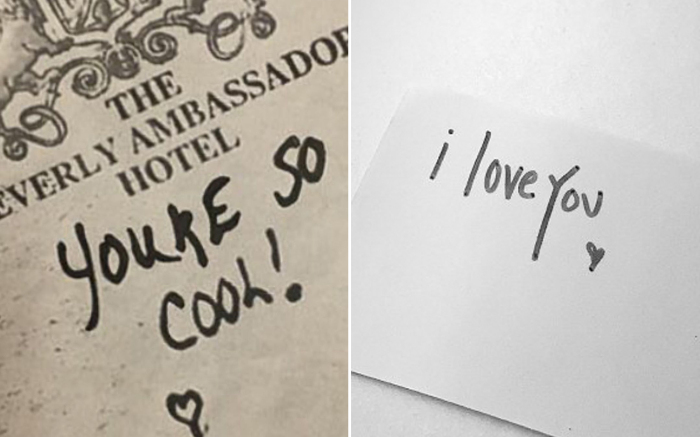 THE
EVERLY AMBASSADOR
HOTEL
YOU'RE SO
COOL!
i love you